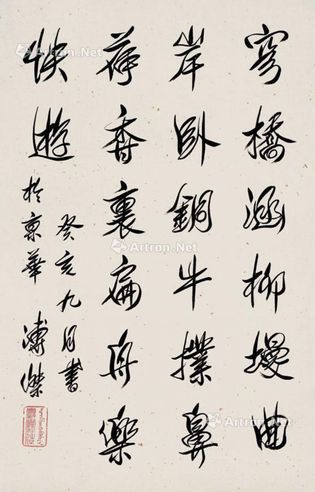 穹橋涵柳曲
岸卧銅牛撲鼻
荷香裏扁舟樂
快遊
癸亥九月書
於京華 溥傑
Artron.Net
Artron.Net
Artron.Net
Artron.Net